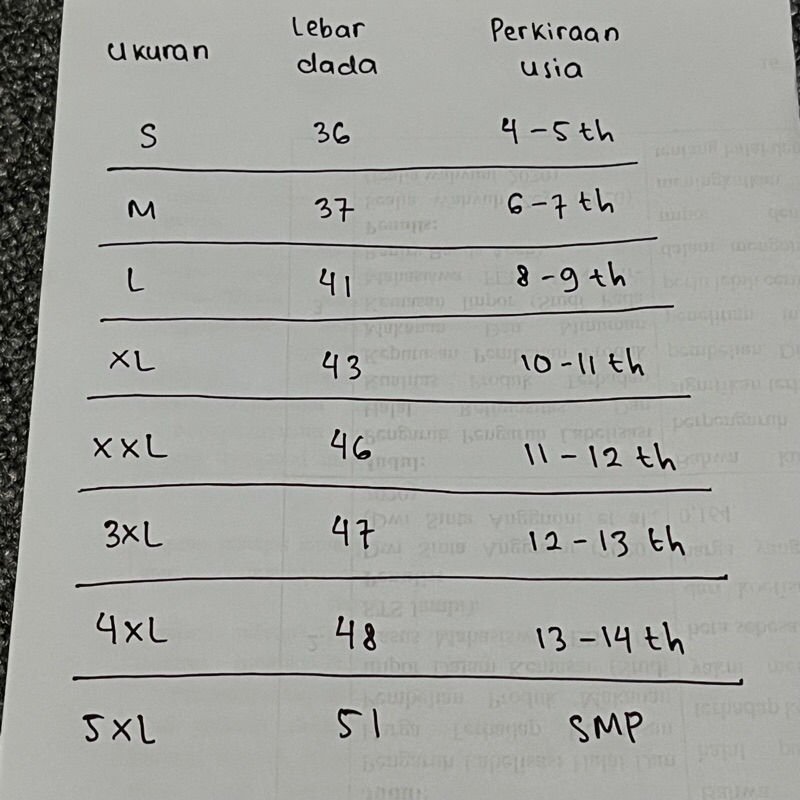 Ukuran Lebar dada Perkiraan usia
S 36 4-5 th
M 37 6-7 th
L 41 8-9 th
XL 43 10-11 th
XXL 46 11-12 th
3XL 47 12-13 th
4XL 48 13-14 th
5XL 51 SMP